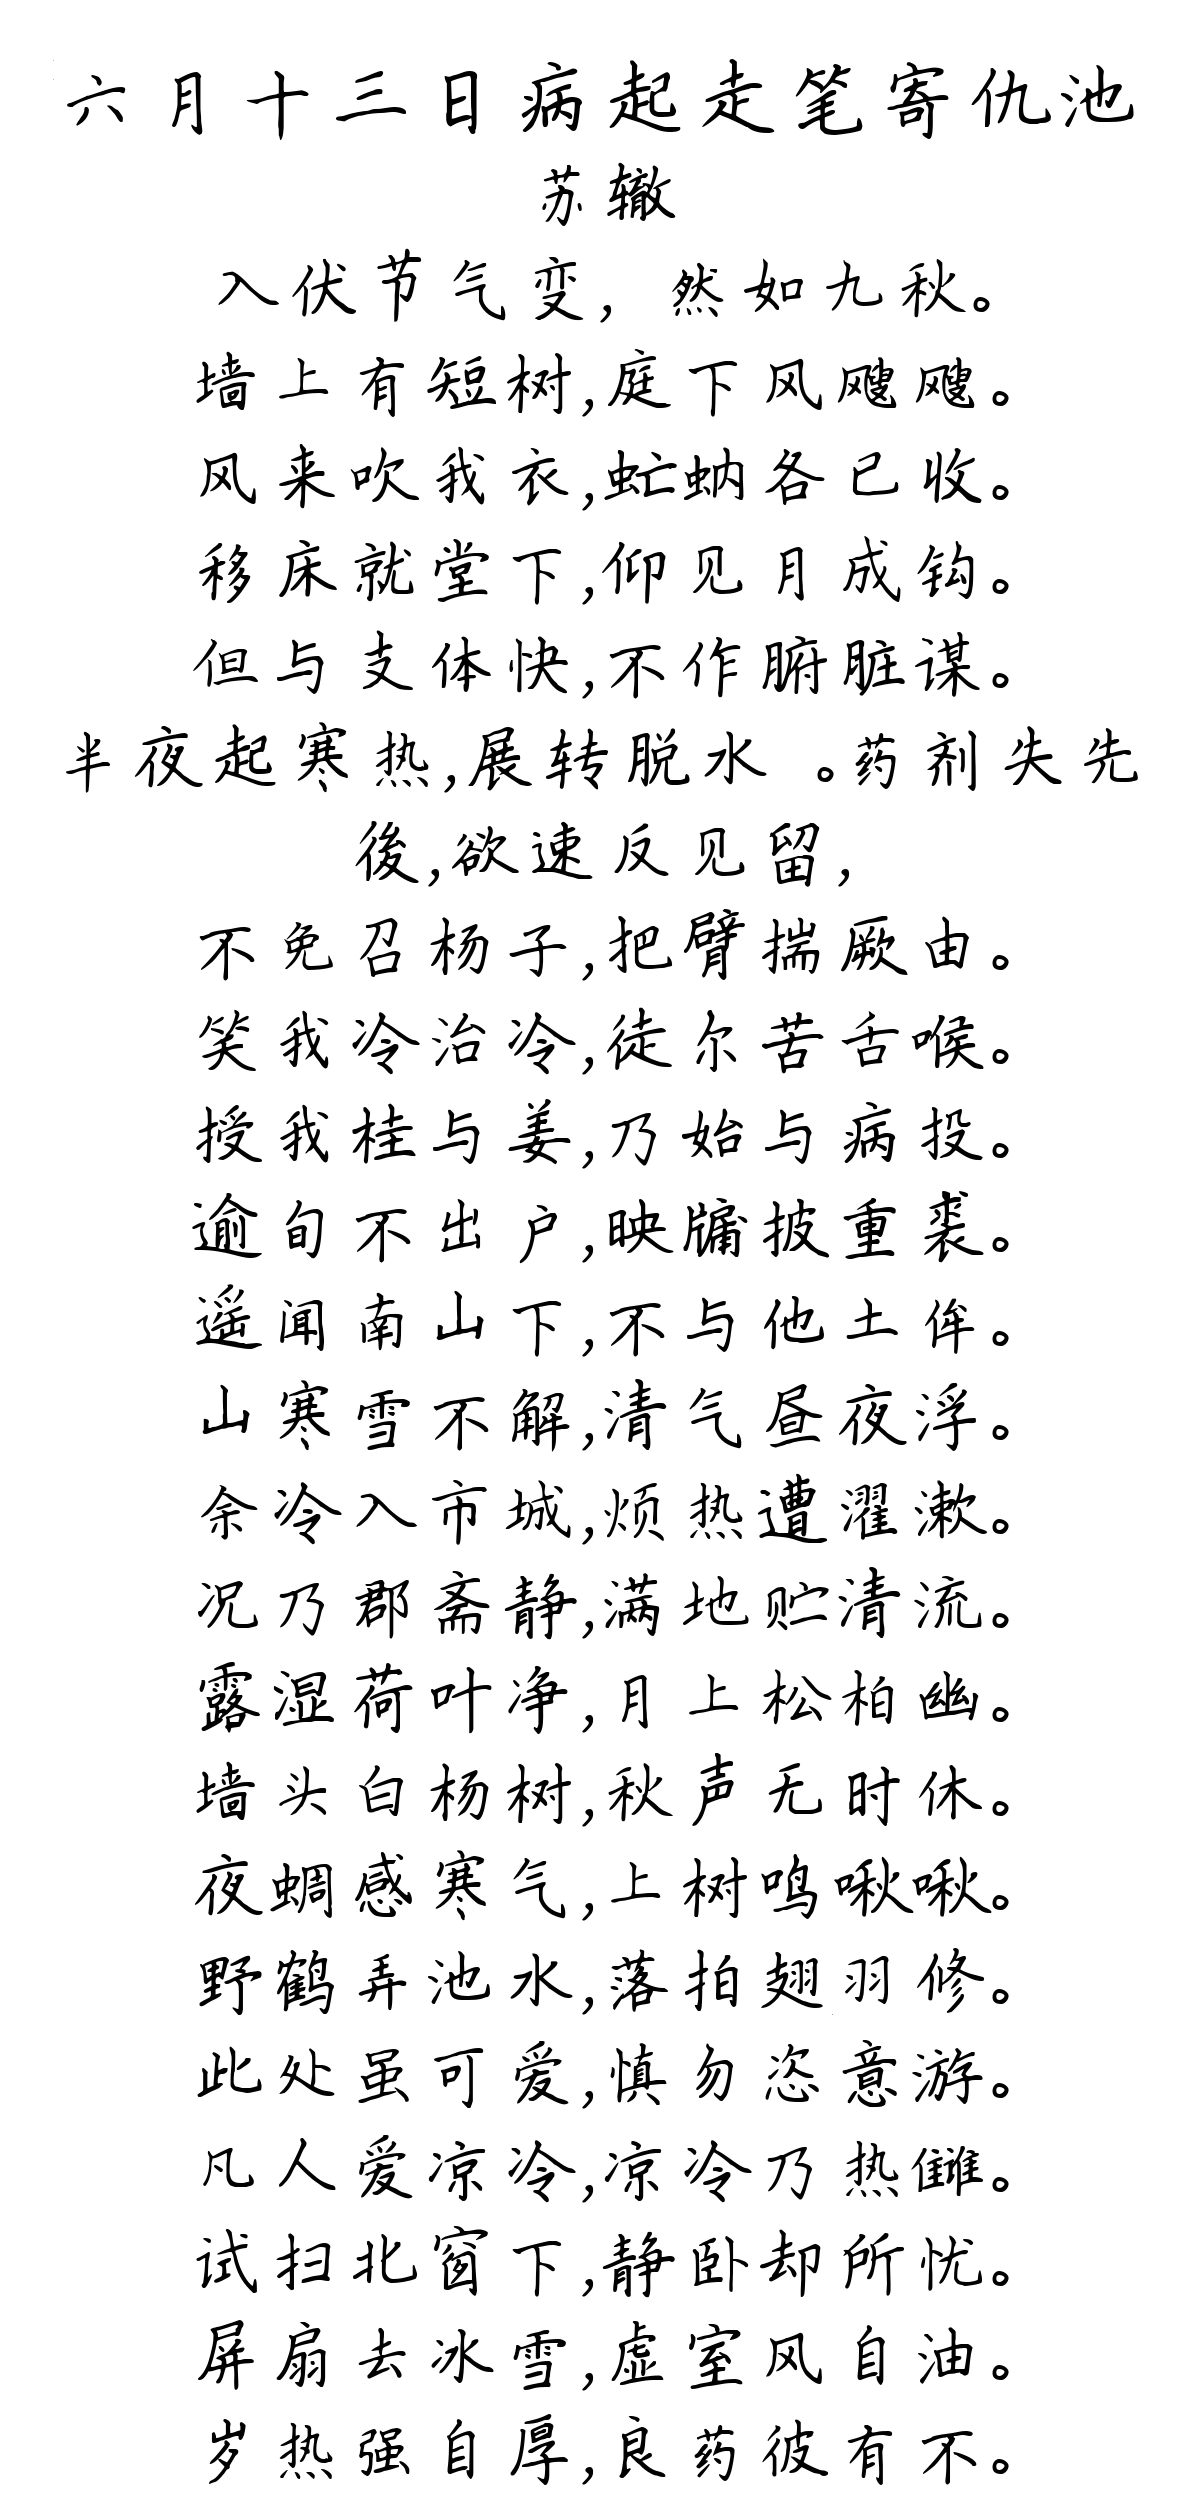 六月十三日病起走笔寄仇池
苏辙
入伏节气变，然如九秋。
墙上有短树，庭下风飕飕。
风来吹我衣，虻蚋各已收。
移床就堂下，仰见月成钩。
但与支体快，不作腑脏谋。
半夜起寒热，展转脱水 。药剂失先
後，欲速反见留，
不免召杨子，把臂揣厥由。
笑我冷治冷，徒尔苦舌喉。
授我桂与姜，乃始与病投。
逾旬不出户，映牖披重裘。
遥闻南山下，不与他土侔。
山寒雪不解，清气昼夜浮。
余冷入市城，烦热遭濯漱。
况乃郡斋静，满地贮清流。
露湿荷叶净，月上松柏幽。
墙头白杨树，秋声无时休。
夜蜩感寒气，上树鸣啾啾。
野鹤弄池水，落拍翅羽修。
此处虽可爱，慎勿恣意游。
凡人爱凉冷，凉冷乃热雠。
试扫北窗下，静卧却所忧。
屏扇去冰雪，虚室风自油。
岁热强自厚，良药彼有不。